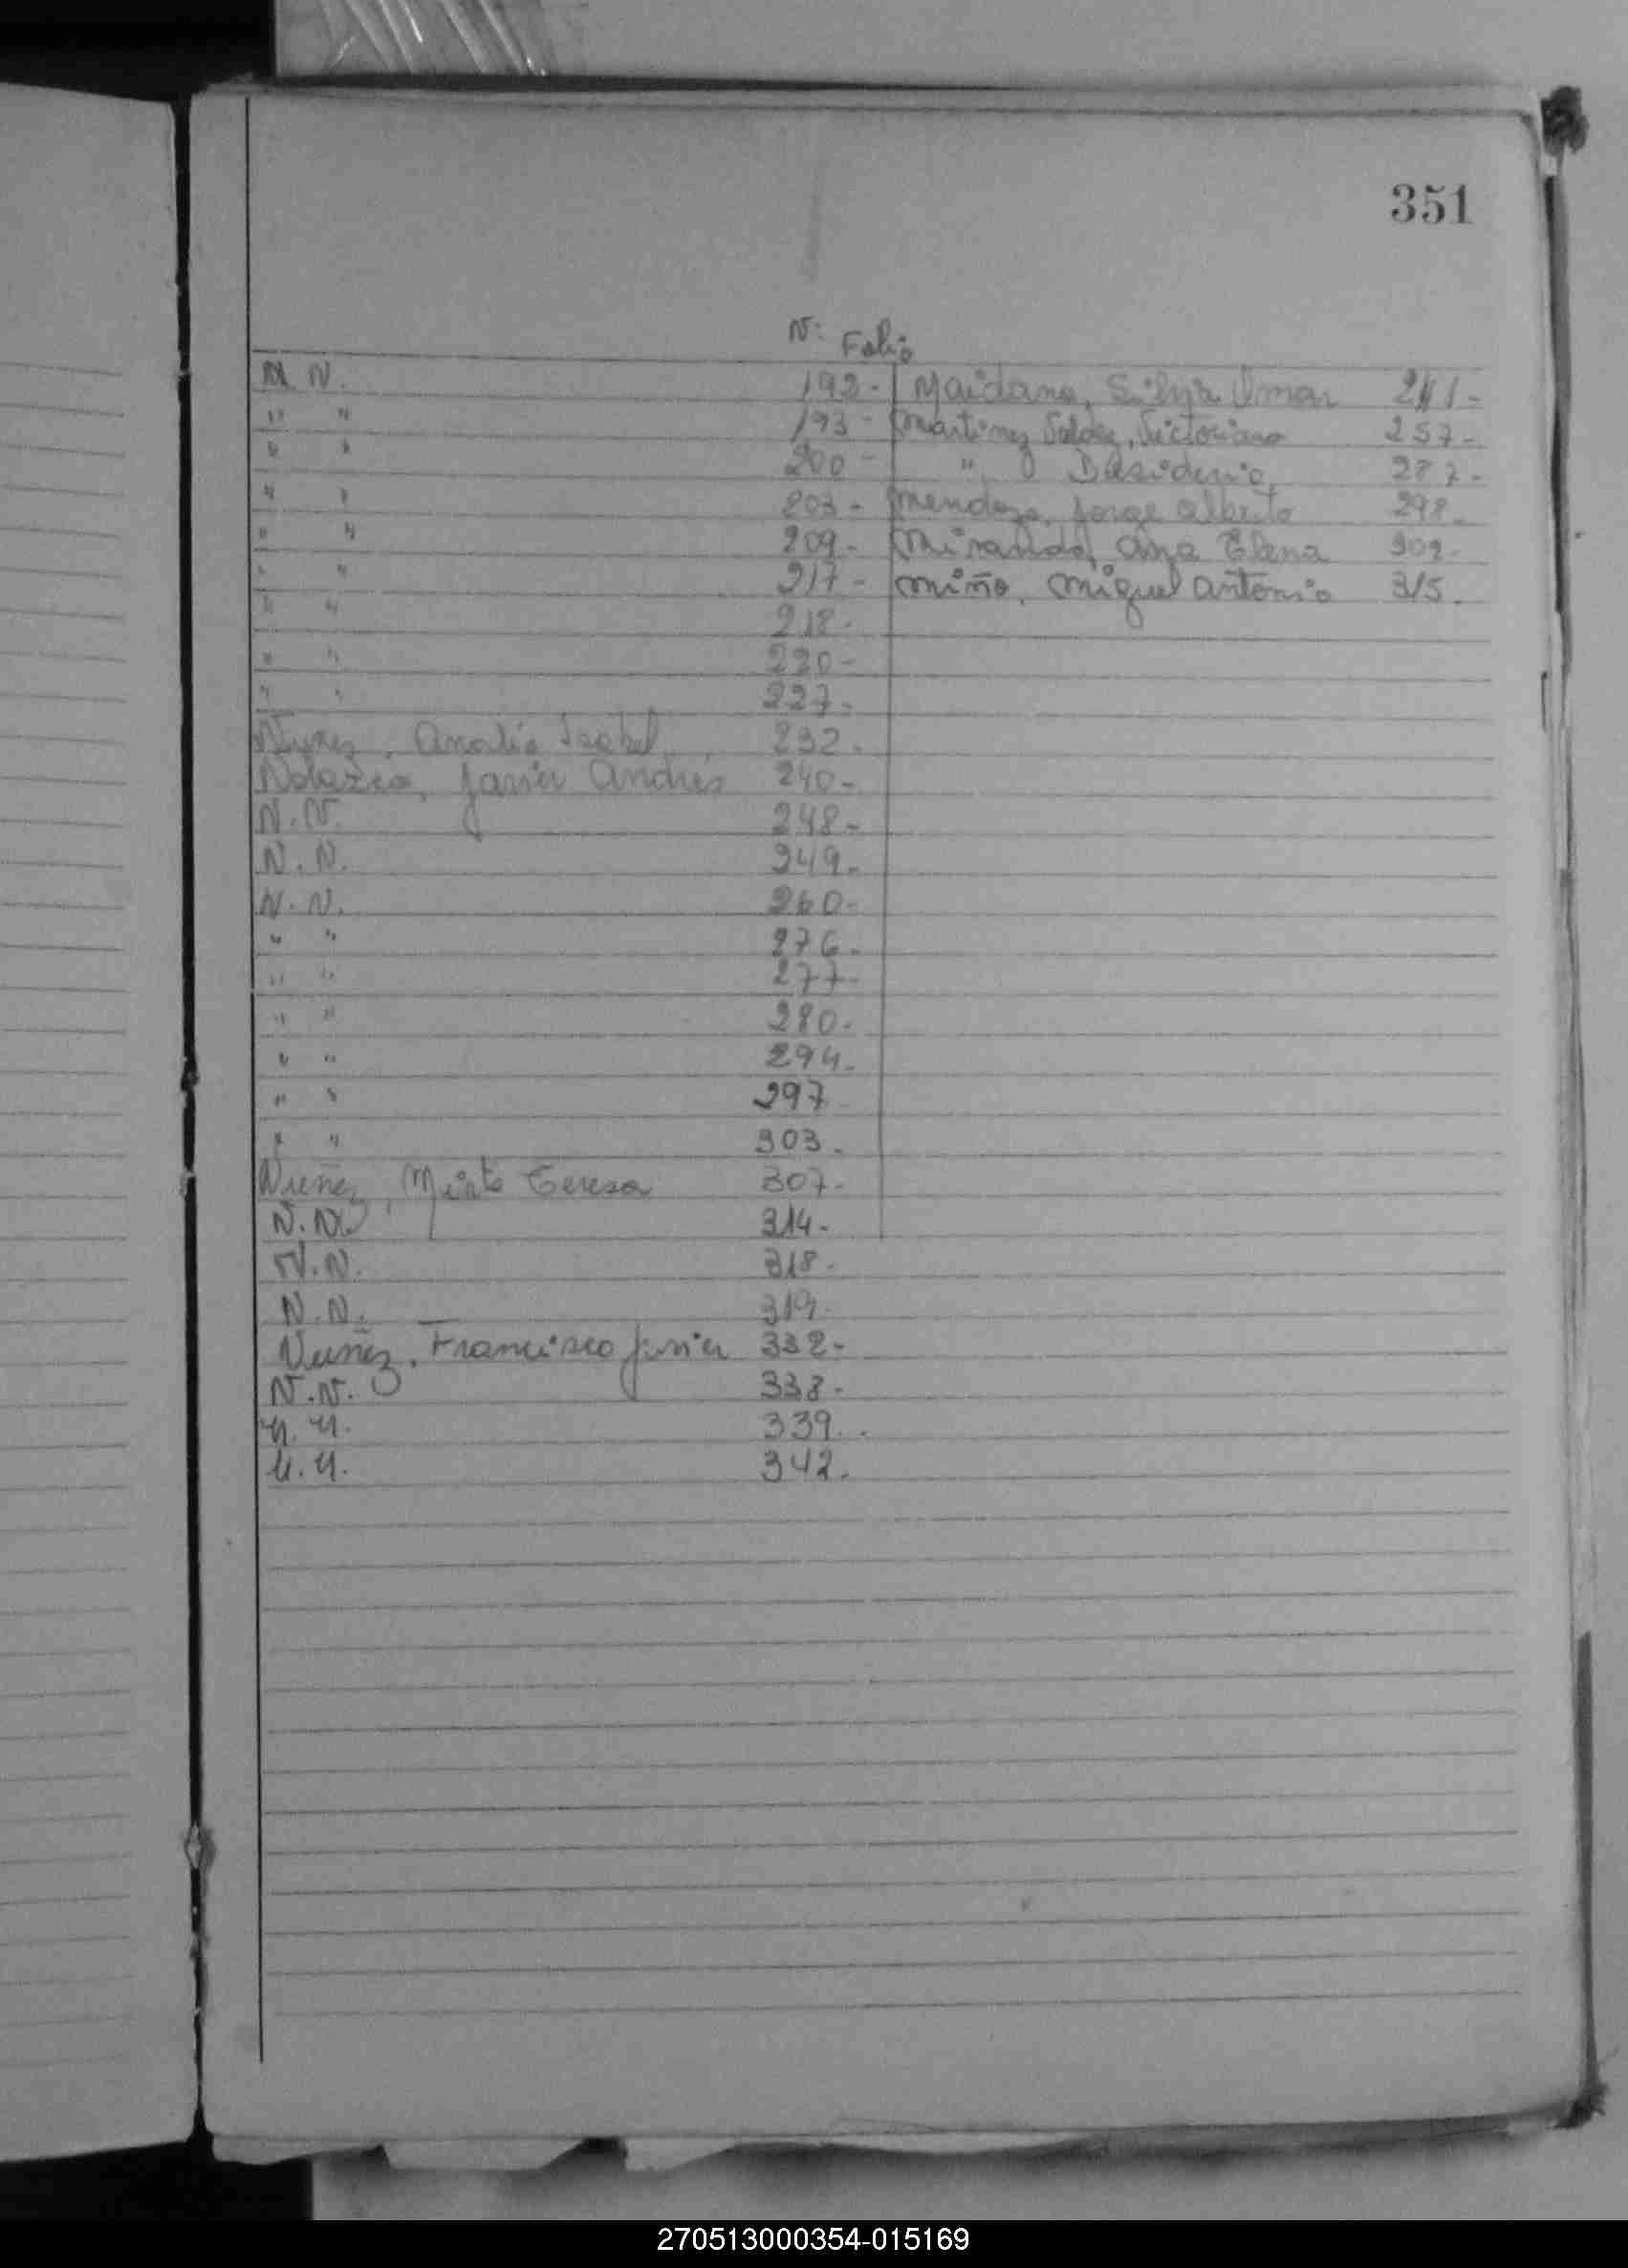 351
N: Folio
N. N. 192-
" " 193-
" " 200-
" " 203-
" " 209-
" " 217-
" " 218-
" " 220-
" " 227-
Nuñez, Analia Isabel 232.
Nolazco, Javier Andres 240-
N.N. 248-
N.N. 249-
N.N. 260-
" " 276-
" " 277-
" " 280-
" " 294-
" " 297
" " 303-
Nuñez, Mirta Teresa 307-
N.N. 314-
N.N. 318-
N.N. 319-
Nuñez, Francisco Javier 332-
N.N. 338-
N.N. 339.
N.N. 342.
Maidana, Silvia Omar 241-
Martinez Valdez, Victoriano 257-
" Desiderio 287-
Mendoza, Jorge Alberto 298-
Miranda, Ana Elena 302-
Miño, Miguel Antonio 315.
270513000354-015169